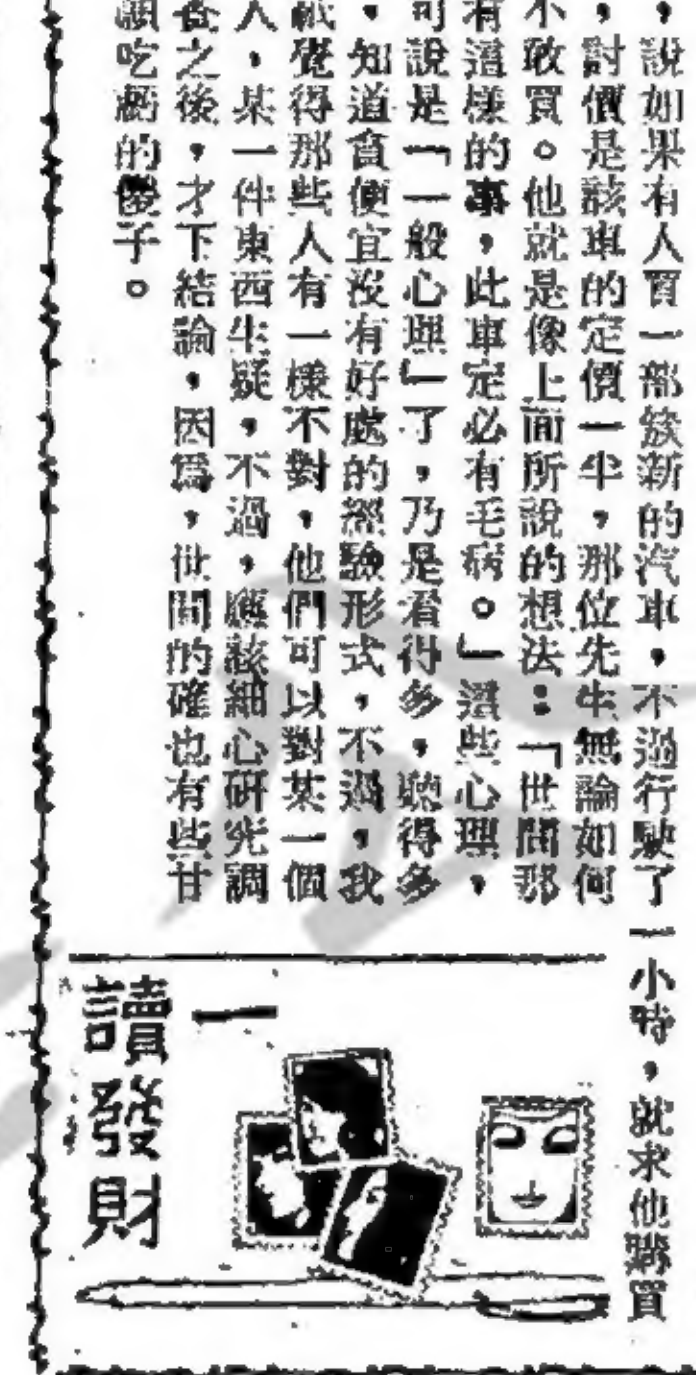 ，說如果有人買一部簇新的汽車，不過行駛了一小時，就求他購買
，討價是該車的定價一半，那位先生無論如何
不敢買。他就是像上面所說的想法：「世間那
有這樣的事，此車定必有毛病。」這些心理，
可說是「一般心理」了，乃是看得多，聽得多
，知道貪便宜沒有好處的經驗形式，不過，我
祇覺得那些人有一樣不對，他們可以對某一個
人，某一件東西生疑，不過，應該細心研究調
查之後，才下結論，因爲，世間的確也有些甘
願吃虧的傻子。
一
讀發財